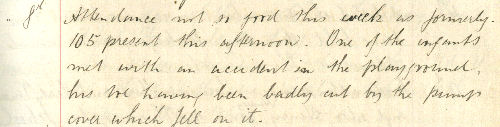 " 9th Attendance not so good this week as formerly.
105 present this afternoon. One of the infants
met with an accident in the playground,
his toe having been badly cut by the pump
cover which fell on it.